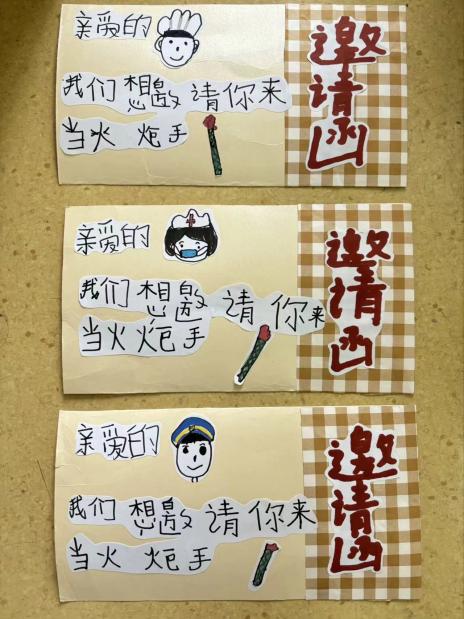 亲爱的
我们想邀请你来
当火炮手
邀请函
亲爱的
我们想邀请你来
当火炮手
邀请函
亲爱的
我们想邀请你来
当火炮手
邀请函